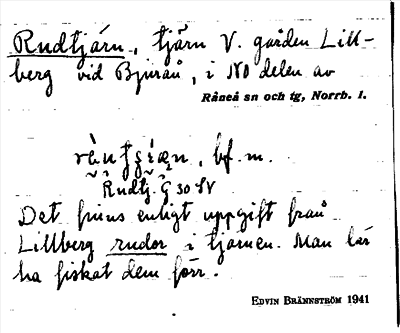 Rudtjärn, tjärn V. gården Lill-
berg vid Bjurån, i NO delen av
Råneå sn och tg, Norrb. l.
bf. m.
Rudtj. G 30 SV
Det finns enligt uppgift från
Lillberg rudor i tjärnen. Man lär
ha fiskat dem förr.
EDVIN BRÄNNSTRÖM 1941